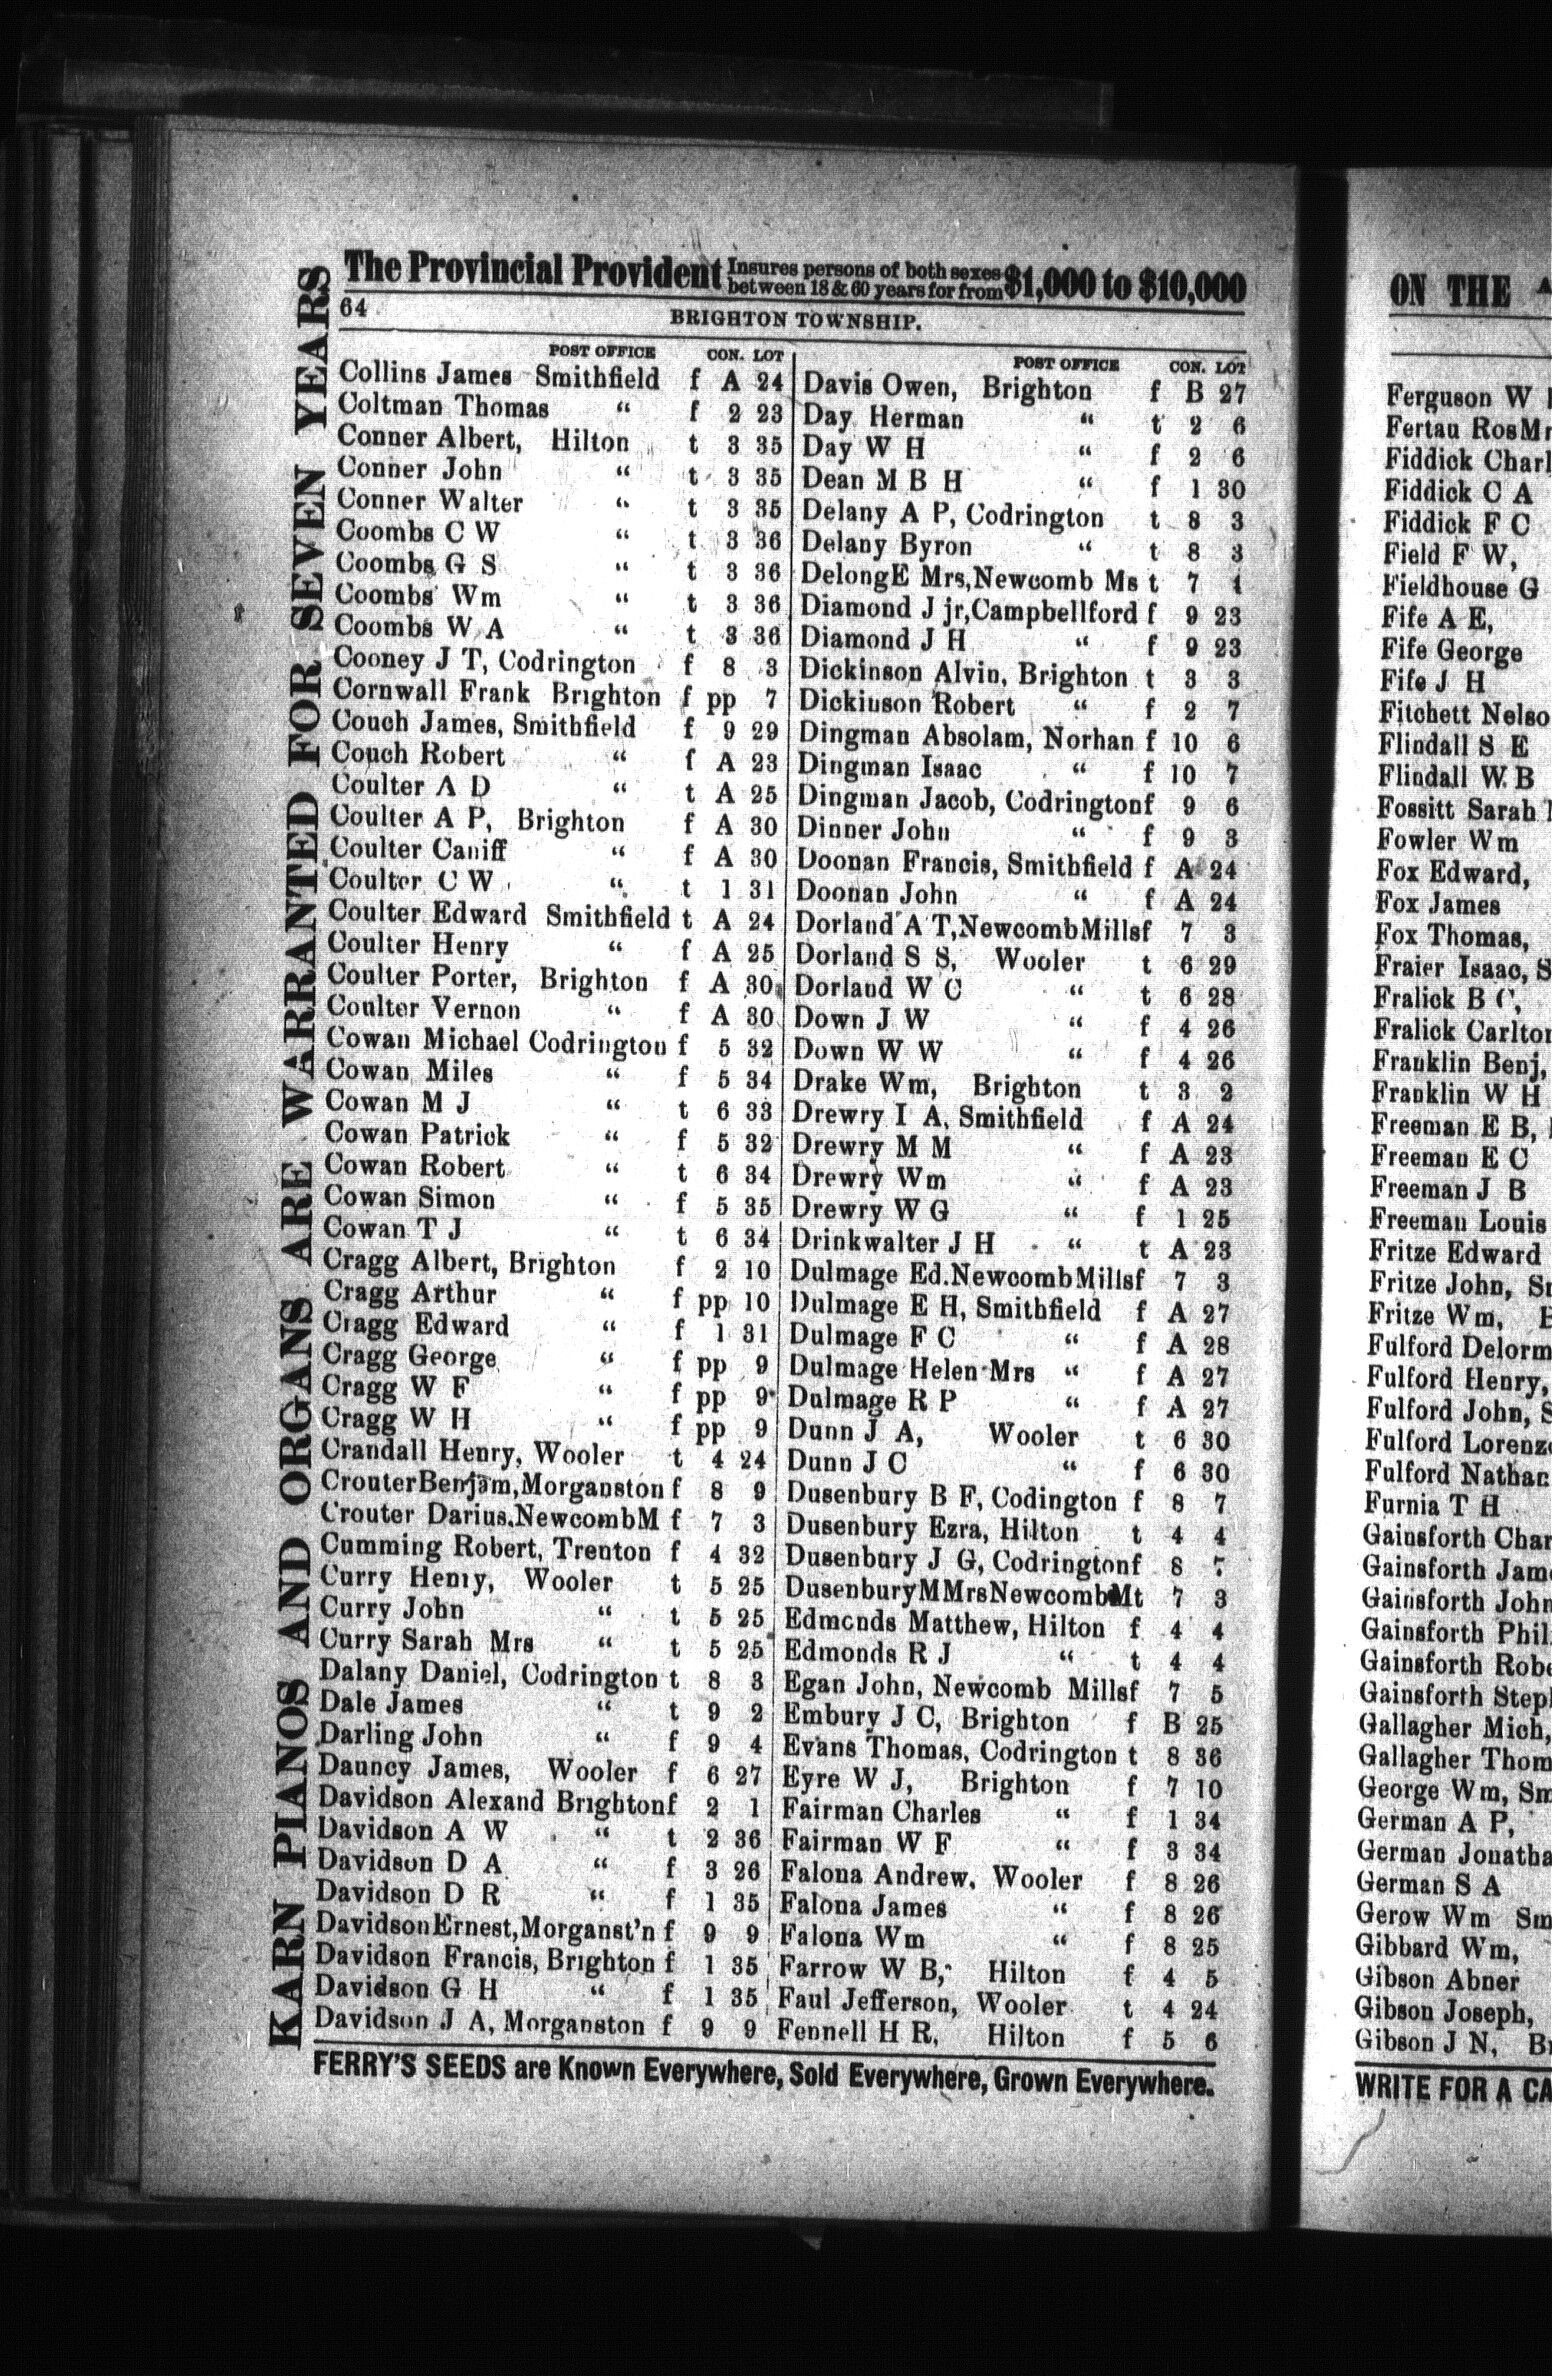 The Provincial Provident Insures persons of both sexes between 18 & 60 years for from $1,000 to $10,000
64
BRIGHTON TOWNSHIP.
KARN PIANOS AND ORGANS ARE WARRANTED FOR SEVEN YEARS
POST OFFICE CON. LOT
Collins James Smithfield f A 24
Coltman Thomas “ f 2 23
Conner Albert, Hilton t 3 35
Conner John “ t 3 35
Conner Walter “ t 3 35
Coombs C W “ t 3 36
Coombs G S “ t 3 36
Coombs Wm “ t 3 36
Coombs W A “ t 3 36
Cooney J T, Codrington f 8 3
Cornwall Frank Brighton f pp 7
Couch James, Smithfield f 9 29
Couch Robert “ f A 23
Coulter A D “ t A 25
Coulter A P, Brighton f A 30
Coulter Caniff “ f A 30
Coulter C W “ t 1 31
Coulter Edward Smithfield t A 24
Coulter Henry “ f A 25
Coulter Porter, Brighton f A 30
Coulter Vernon “ f A 30
Cowan Michael Codrington f 5 32
Cowan Miles “ f 5 34
Cowan M J “ t 6 33
Cowan Patrick “ f 5 32
Cowan Robert “ t 6 34
Cowan Simon “ f 5 35
Cowan T J “ t 6 34
Cragg Albert, Brighton f 2 10
Cragg Arthur “ f pp 10
Cragg Edward “ f 1 31
Cragg George “ f pp 9
Cragg W F “ f pp 9
Cragg W H “ f pp 9
Crandall Henry, Wooler t 4 24
CrouterBenjam,Morganston f 8 9
Crouter Darius,NewcombM f 7 3
Cumming Robert, Trenton f 4 32
Curry Henry, Wooler t 5 25
Curry John “ t 5 25
Curry Sarah Mrs “ t 5 25
Dalany Daniel, Codrington t 8 3
Dale James “ t 9 2
Darling John “ f 9 4
Dauncy James, Wooler f 6 27
Davidson Alexand Brightonf 2 1
Davidson A W “ t 2 36
Davidson D A “ f 3 26
Davidson D R “ f 1 35
DavidsonErnest,Morganst'n f 9 9
Davidson Francis, Brighton f 1 35
Davidson G H “ f 1 35
Davidson J A, Morganston f 9 9
POST OFFICE CON. LOT
Davis Owen, Brighton f B 27
Day Herman “ t 2 6
Day W H “ f 2 6
Dean M B H “ f 1 30
Delany A P, Codrington t 8 3
Delany Byron “ t 8 3
DelongE Mrs,Newcomb Ms t 7
Diamond J jr,Campbellford f 9 23
Diamond J H “ f 9 23
Dickinson Alvin, Brighton t 3 3
Dickinson Robert “ f 2 7
Dingman Absolam, Norhan f 10 6
Dingman Isaac “ f 10 7
Dingman Jacob, Codringtonf 9 6
Dinner John “ f 9 3
Doonan Francis, Smithfield f A 24
Doonan John “ f A 24
Dorland A T,NewcombMillsf 7 3
Dorland S S, Wooler t 6 29
Dorland W C “ t 6 28
Down J W “ f 4 26
Down W W “ f 4 26
Drake Wm, Brighton t 3 2
Drewry I A, Smithfield f A 24
Drewry M M “ f A 23
Drewry Wm “ f A 23
Drewry W G “ f 1 25
Drinkwalter J H “ t A 23
Dulmage Ed.NewcombMillsf 7 3
Dulmage E H, Smithfield f A 27
Dulmage F C “ f A 28
Dulmage Helen Mrs “ f A 27
Dulmage R P “ f A 27
Dunn J A, Wooler t 6 30
Dunn J C “ f 6 30
Dusenbury B F, Codington f 8 7
Dusenbury Ezra, Hilton t 4 4
Dusenbury J G, Codringtonf 8 7
DusenburyMMrsNewcombMt 7 3
Edmonds Matthew, Hilton f 4 4
Edmonds R J “ t 4 4
Egan John, Newcomb Millsf 7 5
Embury J C, Brighton f B 25
Evans Thomas, Codrington t 8 36
Eyre W J, Brighton f 7 10
Fairman Charles “ f 1 34
Fairman W F “ f 3 34
Falona Andrew, Wooler f 8 26
Falona James “ f 8 26
Falona Wm “ f 8 25
Farrow W B, Hilton f 4 5
Faul Jefferson, Wooler t 4 24
Fennell H R, Hilton f 5 6
FERRY'S SEEDS are Known Everywhere, Sold Everywhere, Grown Everywhere.
ON THE
Ferguson W
Fertau RosMr
Fiddick Charl
Fiddick C A
Fiddick F C
Field F W,
Fieldhouse G
Fife A E,
Fife George
Fife J H
Fitchett Nelso
Flindall S E
Flindall W B
Fossitt Sarah
Fowler Wm
Fox Edward,
Fox James
Fox Thomas,
Fraier Isaac, S
Fralick B C,
Fralick Carlton
Franklin Benj,
Franklin W H
Freeman E B,
Freeman E C
Freeman J B
Freeman Louis
Fritze Edward
Fritze John, Sm
Fritze Wm, B
Fulford Delorm
Fulford Henry,
Fulford John, S
Fulford Lorenzo
Fulford Nathan
Furnia T H
Gainsforth Char
Gainsforth Jame
Gainsforth John
Gainsforth Phil
Gainsforth Robe
Gainsforth Steph
Gallagher Mich,
Gallagher Thom
George Wm, Sm
German A P,
German Jonatha
German S A
Gerow Wm Sm
Gibbard Wm,
Gibson Abner
Gibson Joseph,
Gibson J N, Br
WRITE FOR A CA